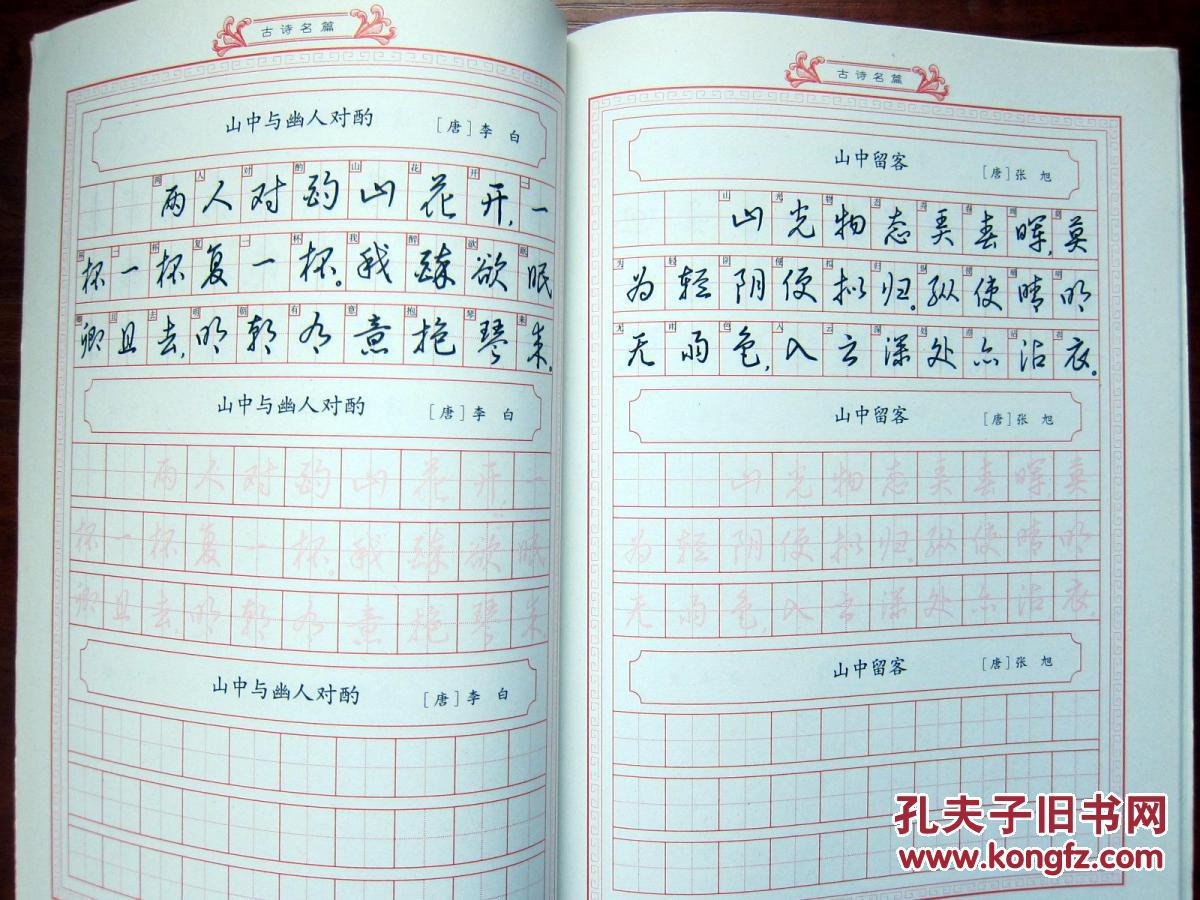 古诗名篇
山中与幽人对酌 [唐]李 白
两人对酌山花开,一
杯一杯复一杯。我醉欲眠
卿且去,明朝有意抱琴来。
山中与幽人对酌 [唐]李 白
两人对酌山花开,一
杯一杯复一杯。我醉欲眠
卿且去,明朝有意抱琴来
山中与幽人对酌 [唐]李 白
古诗名篇
山中留客 [唐]张 旭
山光物态弄春晖,莫
为轻阴便拟归。纵使晴明
无雨色,入云深处亦沾衣。
山中留客 [唐]张 旭
山光物态弄春晖,莫
为轻阴便拟归。纵使晴明
无雨色,入云深处亦沾衣。
山中留客 [唐]张 旭
孔夫子旧书网
www.kongfz.com